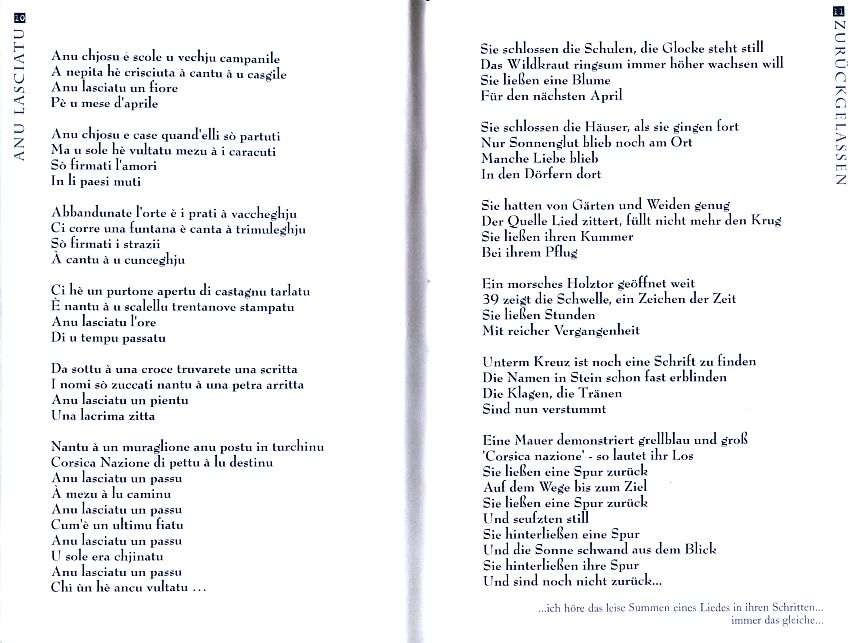 10
ANU LASCIATU
Anu chjosu è scole u vechju campanile
A nepita hè crisciuta à cantu à u casgile
Anu lasciatu un fiore
Pè u mese d'aprile
Anu chjosu e case quand'elli sò partuti
Ma u sole hè vultatu mezu à i caracuti
Sò firmati l'amori
In li paesi muti
Abbandunate l'orte è i prati à vaccheghju
Ci corre una funtana è canta à trimuleghju
Sò firmati i strazii
À cantu à u cunceghju
Ci hè un purtone apertu di castagnu tarlatu
È nantu à u scalellu trentanove stampatu
Anu lasciatu l'ore
Di u tempu passatu
Da sottu à una croce truvarete una scritta
I nomi sò zuccati nantu à una petra arritta
Anu lasciatu un pientu
Una lacrima zitta
Nantu à un muraglione anu postu in turchinu
Corsica Nazione di pettu à lu destinu
Anu lasciatu un passu
À mezu à lu caminu
Anu lasciatu un passu
Cum'è un ultimu fiatu
Anu lasciatu un passu
U sole era chjinatu
Anu lasciatu un passu
Chì ùn hè ancu vultatu ...
11
ZURÜCKGELASSEN
Sie schlossen die Schulen, die Glocke steht still
Das Wildkraut ringsum immer höher wachsen will
Sie ließen eine Blume
Für den nächsten April
Sie schlossen die Häuser, als sie gingen fort
Nur Sonnenglut blieb noch am Ort
Manche Liebe blieb
In den Dörfern dort
Sie hatten von Gärten und Weiden genug
Der Quelle Lied zittert, füllt nicht mehr den Krug
Sie ließen ihren Kummer
Bei ihrem Pflug
Ein morsches Holztor geöffnet weit
39 zeigt die Schwelle, ein Zeichen der Zeit
Sie ließen Stunden
Mit reicher Vergangenheit
Unterm Kreuz ist noch eine Schrift zu finden
Die Namen in Stein schon fast erblinden
Die Klagen, die Tränen
Sind nun verstummt
Eine Mauer demonstriert grellblau und groß
'Corsica nazione' - so lautet ihr Los
Sie ließen eine Spur zurück
Auf dem Wege bis zum Ziel
Sie ließen eine Spur zurück
Und seufzten still
Sie hinterließen eine Spur
Und die Sonne schwand aus dem Blick
Sie hinterließen ihre Spur
Und sind noch nicht zurück...
...ich höre das leise Summen eines Liedes in ihren Schritten...
immer das gleiche...